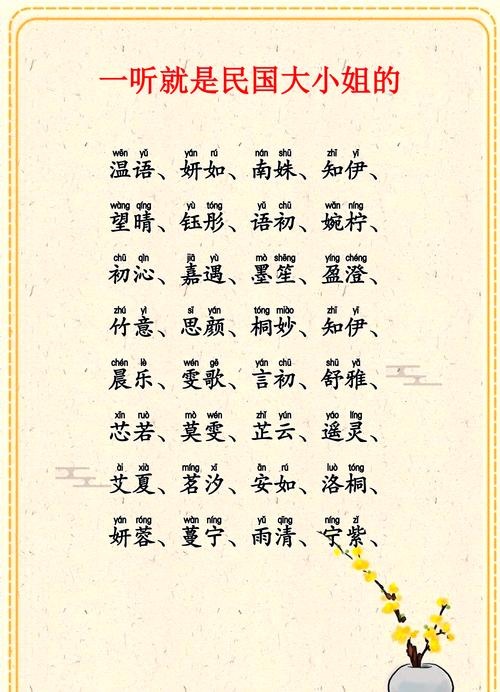 一听就是民国大小姐的
wēn yǔ yán rú nán shū zhī yī
温语、妍如、南姝、知伊、
wàng qíng yù tóng yǔ chū wǎn níng
望晴、钰彤、语初、婉柠、
chū qìn jiā yù mò shēng yíng chéng
初沁、嘉遇、墨笙、盈澄、
zhú yì sī yán tóng miào zhī yī
竹意、思颜、桐妙、知伊、
chén lè wén gē yán chū shū yǎ
晨乐、雯歌、言初、舒雅、
xīn ruò mò wén zhǐ yún yáo líng
芯若、莫雯、芷云、遥灵、
ài xià míng xī ān rú luò tóng
艾夏、茗汐、安如、洛桐、
yán róng wàn níng yǔ qīng níng zǐ
妍蓉、蔓宁、雨清、宁紫、